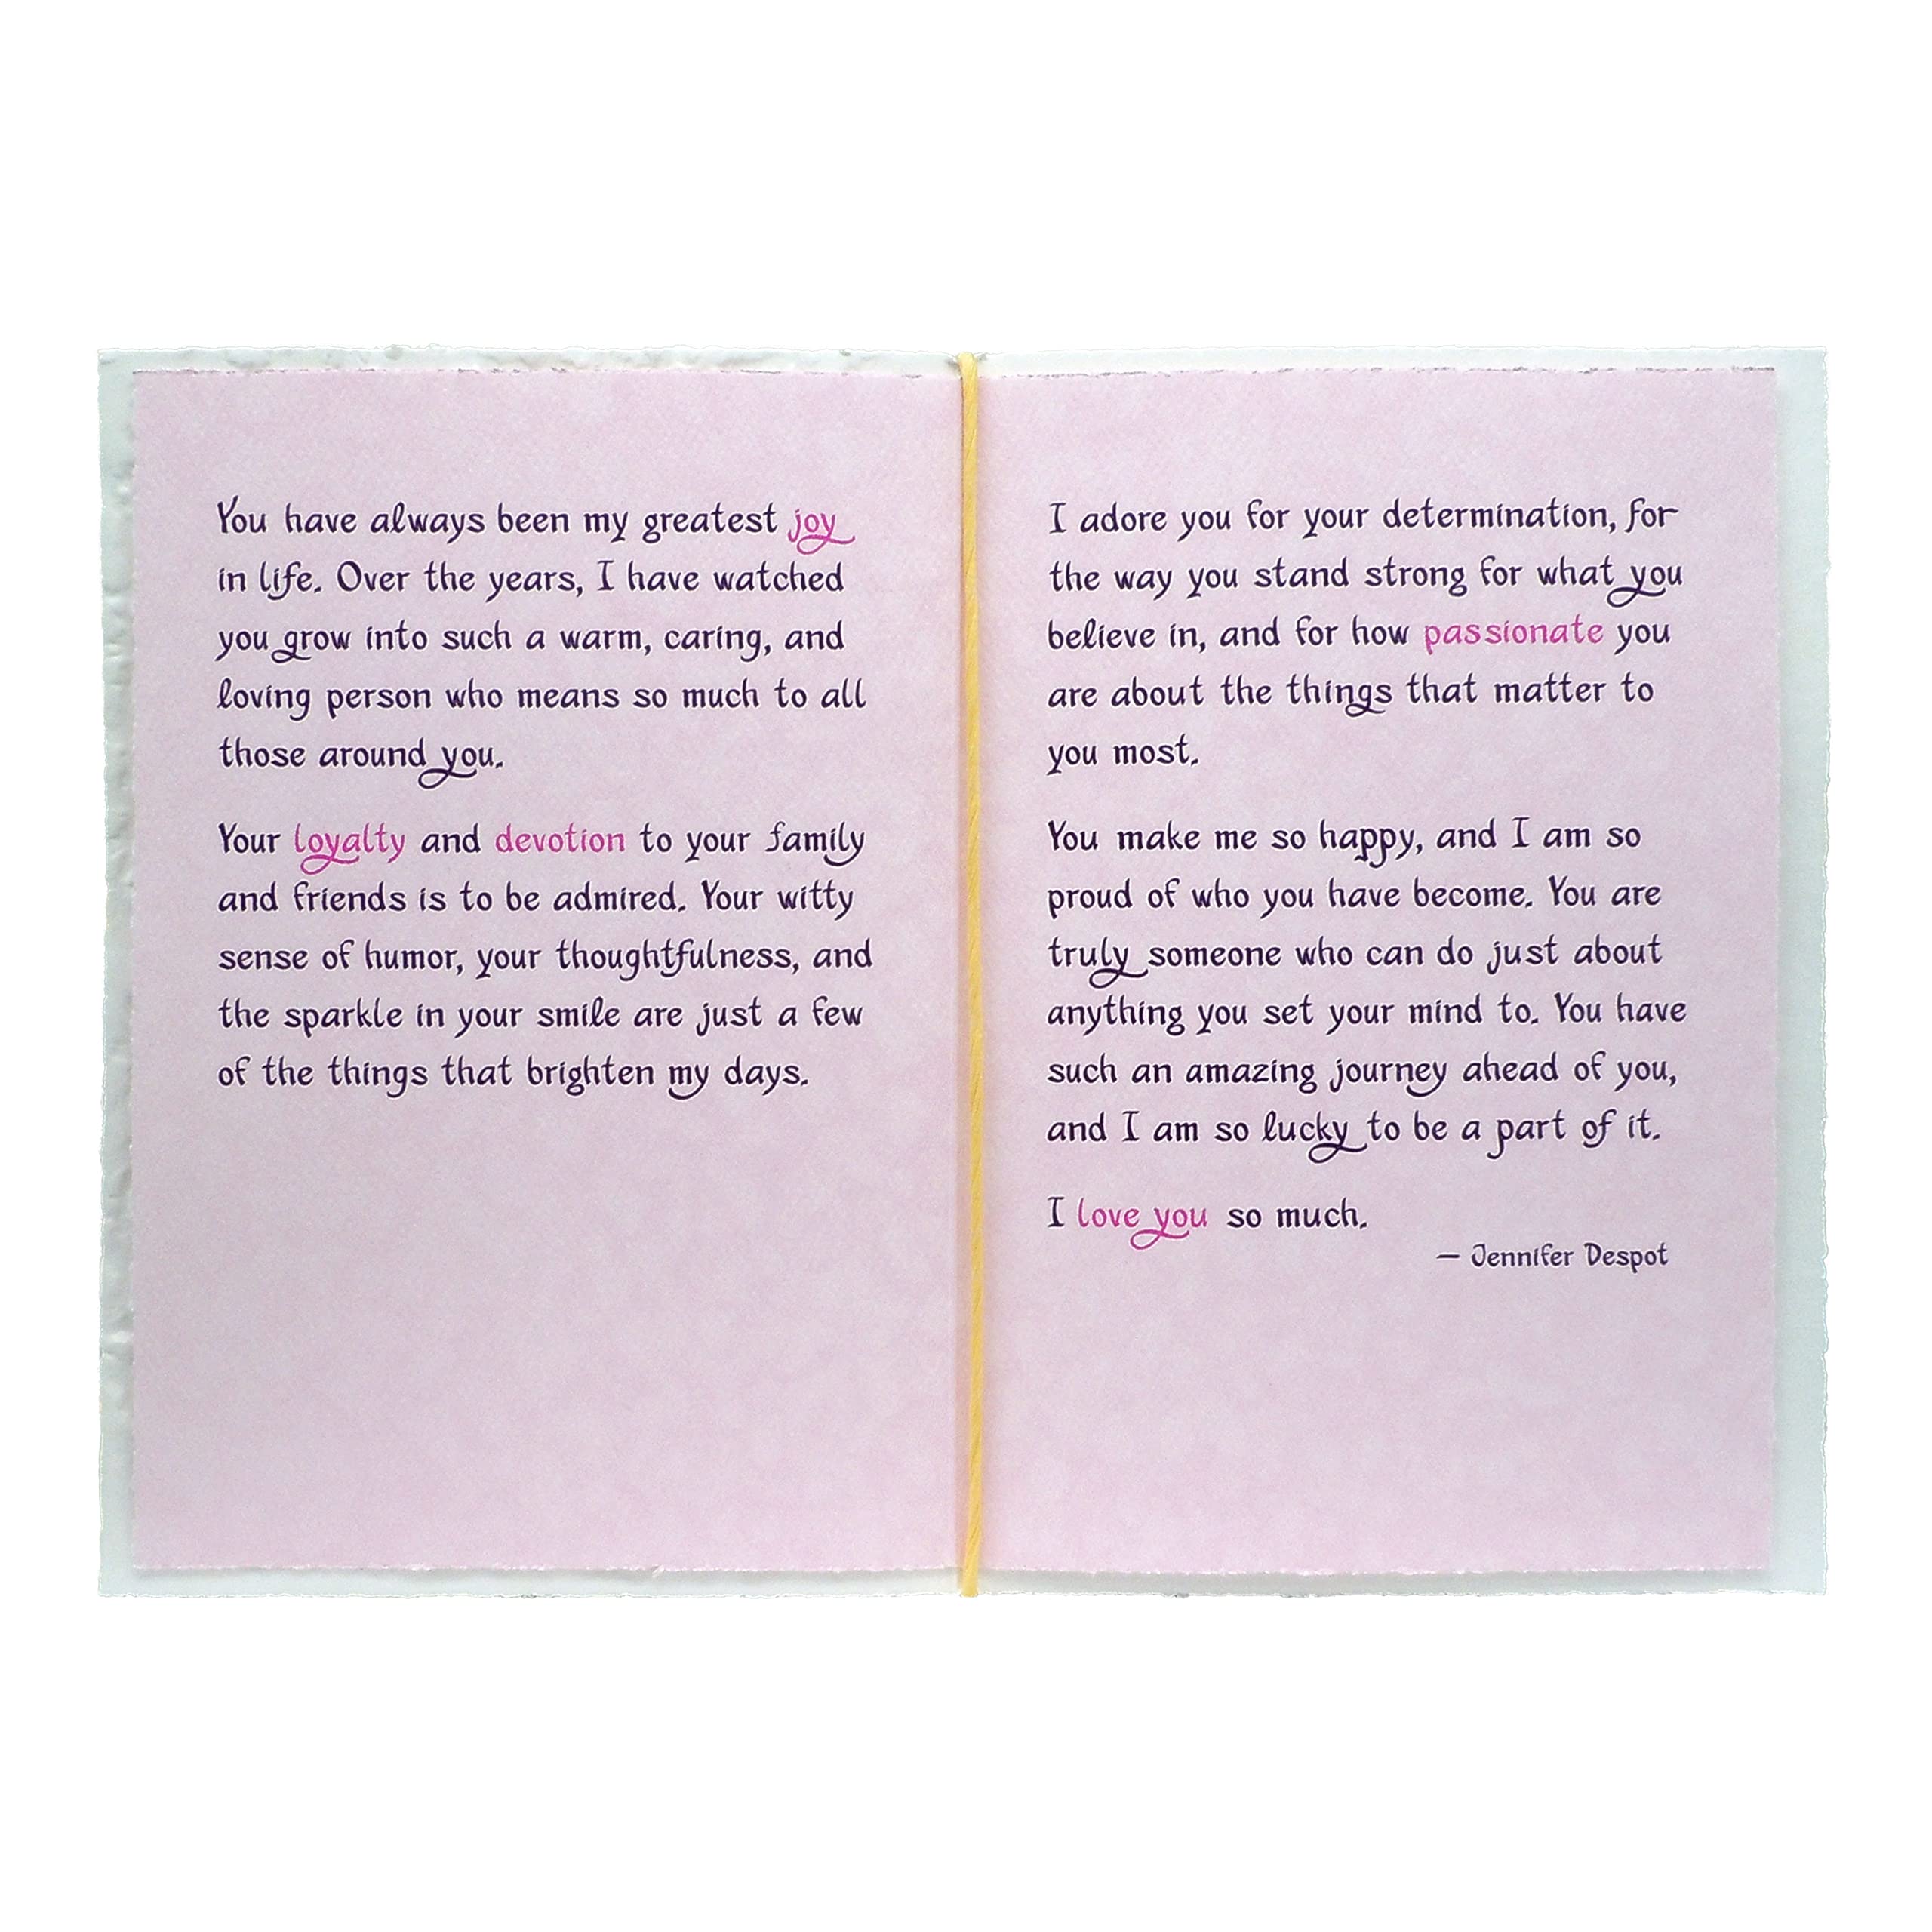 You have always been my greatest joy
in life. Over the years, I have watched
you grow into such a warm, caring, and
loving person who means so much to all
those around you.
Your loyalty and devotion to your family
and friends is to be admired. Your witty
sense of humor, your thoughtfulness, and
the sparkle in your smile are just a few
of the things that brighten my days.
I adore you for your determination, for
the way you stand strong for what you
believe in, and for how passionate you
are about the things that matter to
you most.
You make me so happy, and I am so
proud of who you have become. You are
truly someone who can do just about
anything you set your mind to. You have
such an amazing journey ahead of you,
and I am so lucky to be a part of it.
I love you so much.
— Jennifer Despot